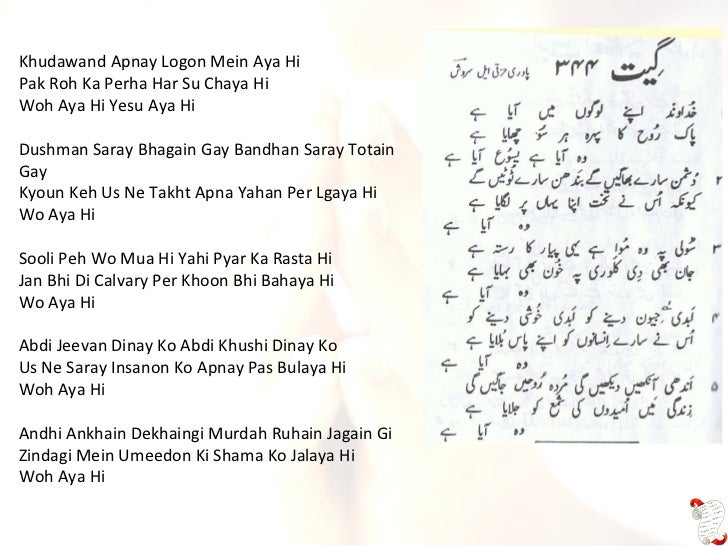 Khudawand Apnay Logon Mein Aya Hi
Pak Roh Ka Perha Har Su Chaya Hi
Woh Aya Hi Yesu Aya Hi
Dushman Saray Bhagain Gay Bandhan Saray Totain
Gay
Kyoun Keh Us Ne Takht Apna Yahan Per Lgaya Hi
Wo Aya Hi
Sooli Peh Wo Mua Hi Yahi Pyar Ka Rasta Hi
Jan Bhi Di Calvary Per Khoon Bhi Bahaya Hi
Wo Aya Hi
Abdi Jeevan Dinay Ko Abdi Khushi Dinay Ko
Us Ne Saray Insanon Ko Apnay Pas Bulaya Hi
Woh Aya Hi
Andhi Ankhain Dekhaingi Murdah Ruhain Jagain Gi
Zindagi Mein Umeedon Ki Shama Ko Jalaya Hi
Woh Aya Hi
گیت ۳۴۴ پادری حزقی ایل سروش
خُداوند اپنے لوگوں میں آیا ہے
پاک رُوح کا پہرہ ہر سُو چھایا ہے
وہ آیا ہے یسُوع آیا ہے
۲ دُشمن سارے بھاگیں گے بندھن سارے ٹوٹیں گے
کیونکہ اُس نے تخت اپنا یہاں پر لگایا ہے
وہ آیا ہے
۳ سُولی پہ وہ مُوا ہے یہی پیار کا رستہ ہے
جان بھی دِی کلوری پہ خُون بھی بہایا ہے
وہ آیا ہے
۴ اَبدی جیون دینے کو اَبدی خُوشی دینے کو
اُس نے سارے اِنسانوں کو اپنے پاس بُلایا ہے
وہ آیا ہے
۵ اَندھی آنکھیں دیکھیں گی مُردہ رُوحیں جاگیں گی
زِندگی میں اُمیدوں کی شمع کو جلایا ہے
وہ آیا ہے